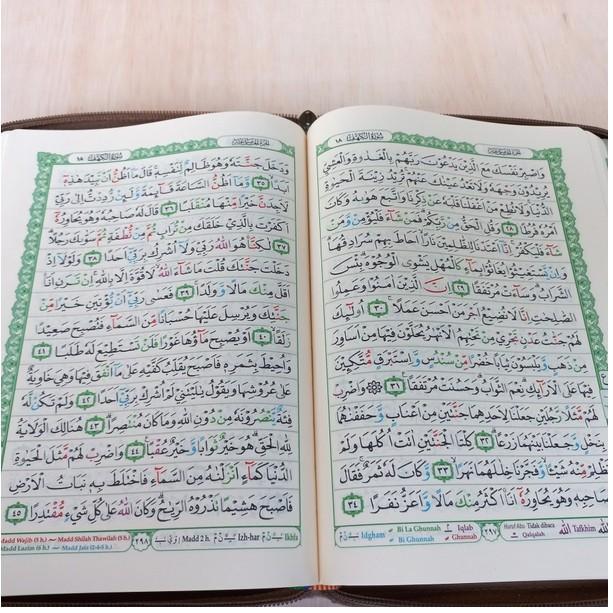 الجزء الخامس عشر سُوْرَةُ الْكَهْف ١٨
وَاصْبِرْ نَفْسَكَ مَعَ الَّذِيْنَ يَدْعُوْنَ رَبَّهُمْ بِالْغَدٰوةِ وَالْعَشِيِّ
يُرِيْدُوْنَ وَجْهَهٗ وَلَا تَعْدُ عَيْنٰكَ عَنْهُمْۚ تُرِيْدُ زِيْنَةَ الْحَيٰوةِ
الدُّنْيَاۚ وَلَا تُطِعْ مَنْ اَغْفَلْنَا قَلْبَهٗ عَنْ ذِكْرِنَا وَاتَّبَعَ هَوٰىهُ وَكَانَ
اَمْرُهٗ فُرُطًا ٢٨ وَقُلِ الْحَقُّ مِنْ رَّبِّكُمْۗ فَمَنْ شَاۤءَ فَلْيُؤْمِنْ وَّمَنْ
شَاۤءَ فَلْيَكْفُرْۚ اِنَّآ اَعْتَدْنَا لِلظّٰلِمِيْنَ نَارًاۙ اَحَاطَ بِهِمْ سُرَادِقُهَاۗ
وَاِنْ يَّسْتَغِيْثُوْا يُغَاثُوْا بِمَاۤءٍ كَالْمُهْلِ يَشْوِى الْوُجُوْهَۗ بِئْسَ
الشَّرَابُۗ وَسَاۤءَتْ مُرْتَفَقًا ٢٩ اِنَّ الَّذِيْنَ اٰمَنُوْا وَعَمِلُوا
الصّٰلِحٰتِ اِنَّا لَا نُضِيْعُ اَجْرَ مَنْ اَحْسَنَ عَمَلًاۚ ٣٠ اُولٰۤىِٕكَ
لَهُمْ جَنّٰتُ عَدْنٍ تَجْرِيْ مِنْ تَحْتِهِمُ الْاَنْهٰرُ يُحَلَّوْنَ فِيْهَا مِنْ اَسَاوِرَ
مِنْ ذَهَبٍ وَّيَلْبَسُوْنَ ثِيَابًا خُضْرًا مِّنْ سُنْدُسٍ وَّاِسْتَبْرَقٍ مُّتَّكِـِٕيْنَ
فِيْهَا عَلَى الْاَرَاۤىِٕكِۗ نِعْمَ الثَّوَابُۗ وَحَسُنَتْ مُرْتَفَقًا ٣١ ۞ وَاضْرِبْ
لَهُمْ مَّثَلًا رَّجُلَيْنِ جَعَلْنَا لِاَحَدِهِمَا جَنَّتَيْنِ مِنْ اَعْنَابٍ وَّحَفَفْنٰهُمَا
بِنَخْلٍ وَّجَعَلْنَا بَيْنَهُمَا زَرْعًاۗ ٣٢ كِلْتَا الْجَنَّتَيْنِ اٰتَتْ اُكُلَهَا وَلَمْ
تَظْلِمْ مِّنْهُ شَيْـًٔاۙ وَّفَجَّرْنَا خِلٰلَهُمَا نَهَرًاۙ ٣٣ وَّكَانَ لَهٗ ثَمَرٌۚ فَقَالَ
لِصَاحِبِهٖ وَهُوَ يُحَاوِرُهٗٓ اَنَا۠ اَكْثَرُ مِنْكَ مَالًا وَّاَعَزُّ نَفَرًا ٣٤
Idgham Bi La Ghunnah Bi Ghunnah Iqlab Ghunnah ٢٩٧ Huruf Abu Tidak dibaca Qalqalah الله Tafkhim
الجزء الخامس عشر سُوْرَةُ الْكَهْف ١٨
وَدَخَلَ جَنَّتَهٗ وَهُوَ ظَالِمٌ لِّنَفْسِهٖۚ قَالَ مَآ اَظُنُّ اَنْ تَبِيْدَ هٰذِهٖٓ
اَبَدًاۙ ٣٥ وَّمَآ اَظُنُّ السَّاعَةَ قَاۤىِٕمَةً وَّلَىِٕنْ رُّدِدْتُّ اِلٰى رَبِّيْ
لَاَجِدَنَّ خَيْرًا مِّنْهَا مُنْقَلَبًا ٣٦ قَالَ لَهٗ صَاحِبُهٗ وَهُوَ يُحَاوِرُهٗٓ
اَكَفَرْتَ بِالَّذِيْ خَلَقَكَ مِنْ تُرَابٍ ثُمَّ مِنْ نُّطْفَةٍ ثُمَّ سَوّٰىكَ رَجُلًاۗ
٣٧ لٰكِنَّا۠ هُوَ اللّٰهُ رَبِّيْ وَلَآ اُشْرِكُ بِرَبِّيْٓ اَحَدًا ٣٨ وَلَوْلَآ اِذْ
دَخَلْتَ جَنَّتَكَ قُلْتَ مَا شَاۤءَ اللّٰهُۙ لَا قُوَّةَ اِلَّا بِاللّٰهِۚ اِنْ تَرَنِ اَنَا۠
اَقَلَّ مِنْكَ مَالًا وَّوَلَدًاۚ ٣٩ فَعَسٰى رَبِّيْٓ اَنْ يُّؤْتِيَنِ خَيْرًا مِّنْ
جَنَّتِكَ وَيُرْسِلَ عَلَيْهَا حُسْبَانًا مِّنَ السَّمَاۤءِ فَتُصْبِحَ صَعِيْدًا
زَلَقًاۙ ٤٠ اَوْ يُصْبِحَ مَاۤؤُهَا غَوْرًا فَلَنْ تَسْتَطِيْعَ لَهٗ طَلَبًا ٤١
وَاُحِيْطَ بِثَمَرِهٖ فَاَصْبَحَ يُقَلِّبُ كَفَّيْهِ عَلٰى مَآ اَنْفَقَ فِيْهَا وَهِيَ خَاوِيَةٌ
عَلٰى عُرُوْشِهَا وَيَقُوْلُ يٰلَيْتَنِيْ لَمْ اُشْرِكْ بِرَبِّيْٓ اَحَدًا ٤٢ وَلَمْ تَكُنْ لَّهٗ
فِئَةٌ يَّنْصُرُوْنَهٗ مِنْ دُوْنِ اللّٰهِ وَمَا كَانَ مُنْتَصِرًاۗ ٤٣ هُنَالِكَ الْوَلَايَةُ
لِلّٰهِ الْحَقِّۗ هُوَ خَيْرٌ ثَوَابًا وَّخَيْرٌ عُقْبًا ٤٤ وَاضْرِبْ لَهُمْ مَّثَلَ الْحَيٰوةِ
الدُّنْيَا كَمَاۤءٍ اَنْزَلْنٰهُ مِنَ السَّمَاۤءِ فَاخْتَلَطَ بِهٖ نَبَاتُ الْاَرْضِ
فَاَصْبَحَ هَشِيْمًا تَذْرُوْهُ الرِّيٰحُۗ وَكَانَ اللّٰهُ عَلٰى كُلِّ شَيْءٍ مُّقْتَدِرًا ٤٥
Madd Wajib (5 h.) Madd Shilah Thawilah (5 h.) Madd Lazim (6 h.) Madd Jaiz (2-4-5 h.) ٢٩٨ Madd 2 h. Izh-har Ikhfa